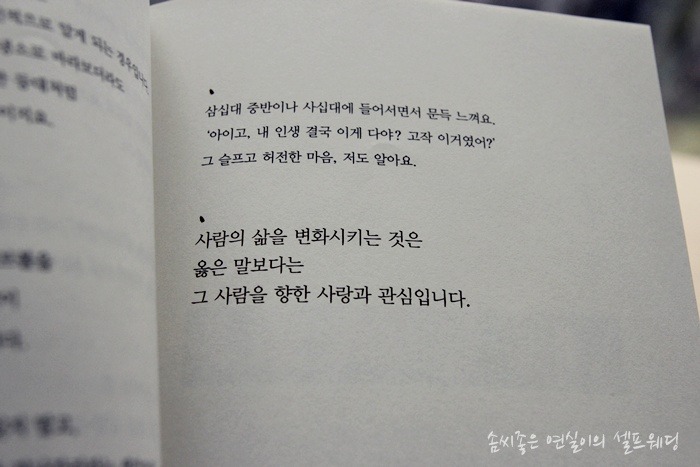 알게 되는 경우입니다.
바라보더라도
등대처럼
이지요.
삼십대 중반이나 사십대에 들어서면서 문득 느껴요.
'아이고, 내 인생 결국 이게 다야? 고작 이거였어?'
그 슬프고 허전한 마음, 저도 알아요.
사람의 삶을 변화시키는 것은
옳은 말보다는
그 사람을 향한 사랑과 관심입니다.
솜씨좋은 연실이의 셀프웨딩